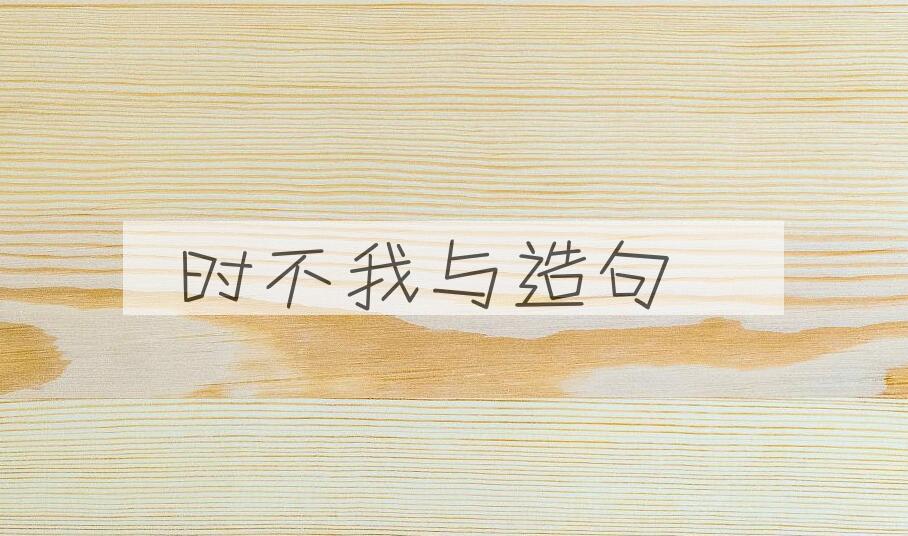 时不我与造句